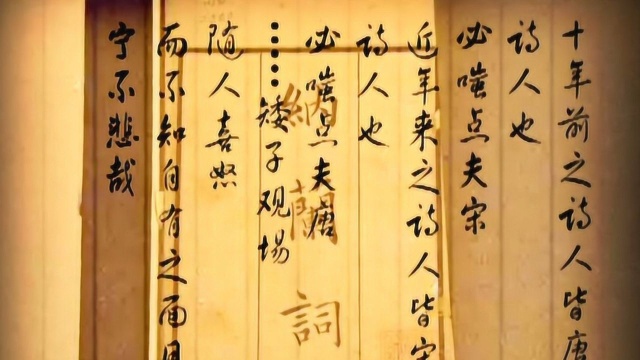 十年前之诗人皆唐
诗人也
必嗤点夫宋
近年来之诗人皆宋
诗人也
必嗤点夫唐
……矮子观场
随人喜怒
而不知自有之面目
宁不悲哉
納蘭詞